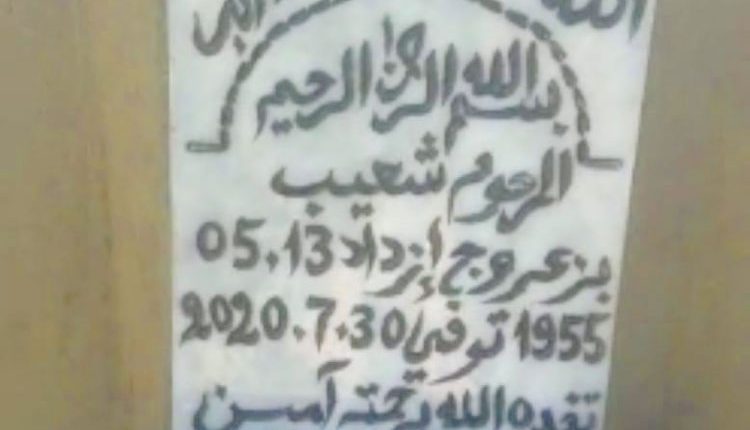 الله اكبر
بسم الله الرحمن الرحيم
المرحوم شعيب
بن عروج إزداد 05.13
1955 توفي 2020.7.30
تغمده الله برحمته آمين